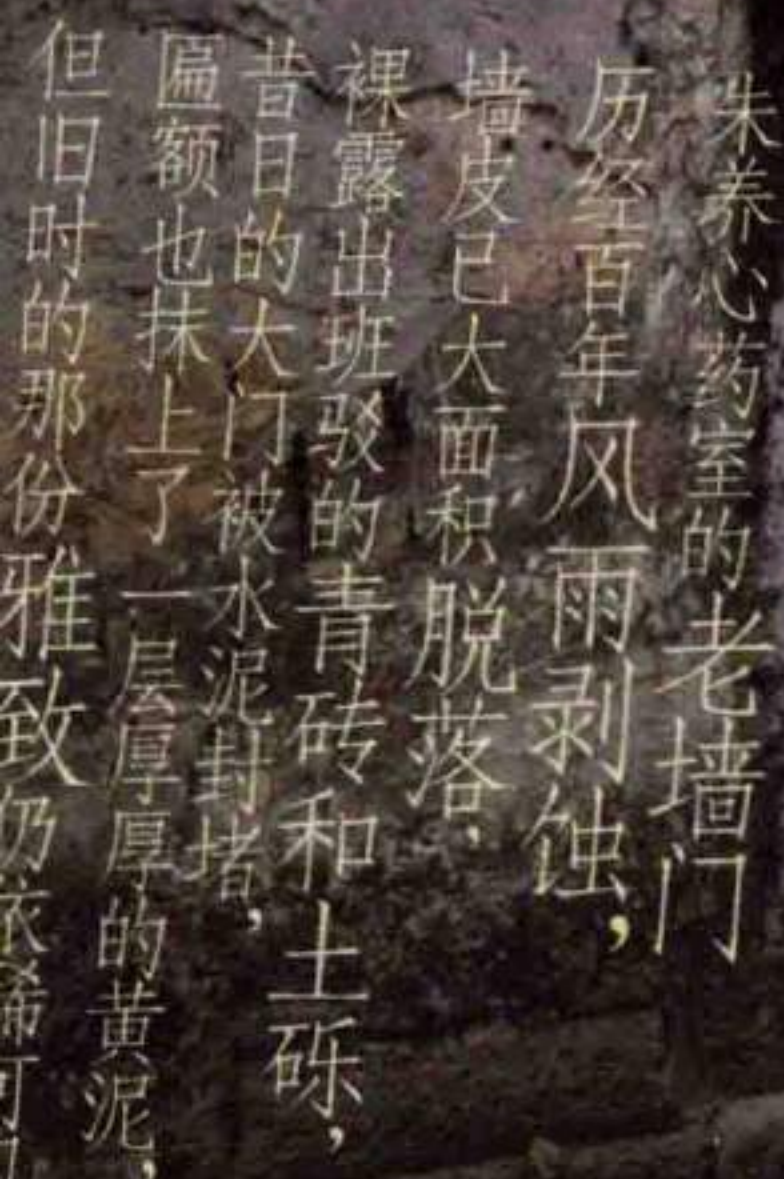 朱养心药室的老墙门
历经百年风雨剥蚀，
墙皮已大面积脱落，
裸露出班驳的青砖和土砾，
昔日的大门被水泥封堵，
匾额也抹上了一层厚厚的黄泥，
但旧时的那份雅致仍依稀可